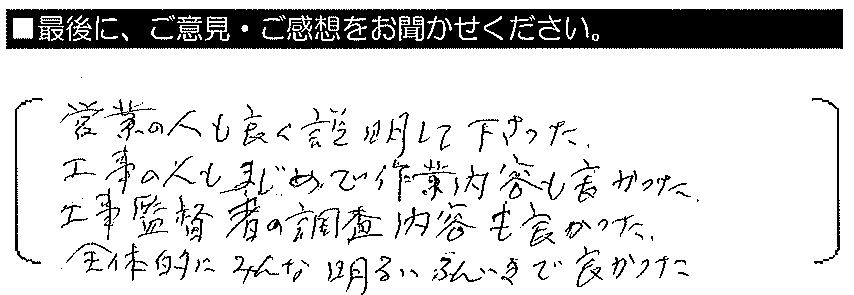 ■最後に、ご意見・ご感想をお聞かせください。
営業の人も良く説明して下さった.
工事の人もまじめで作業内容も良かった.
工事監督者の調査内容も良かった.
全体的にみんな明るいふんいきで良かった